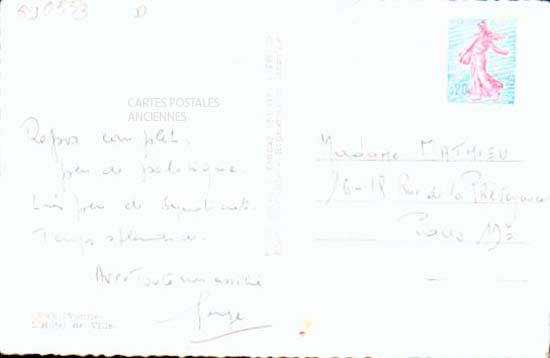 D
0,20
CARTES POSTALES
ANCIENNES
Repos complet.
peu de politique.
très peu de syndicat.
Temps splendide.
Avec toute mon amitié
Serge
L'Hôtel de Ville
Madame MATHIEU
16-18 Rue de la Prévoyance
Paris 19è